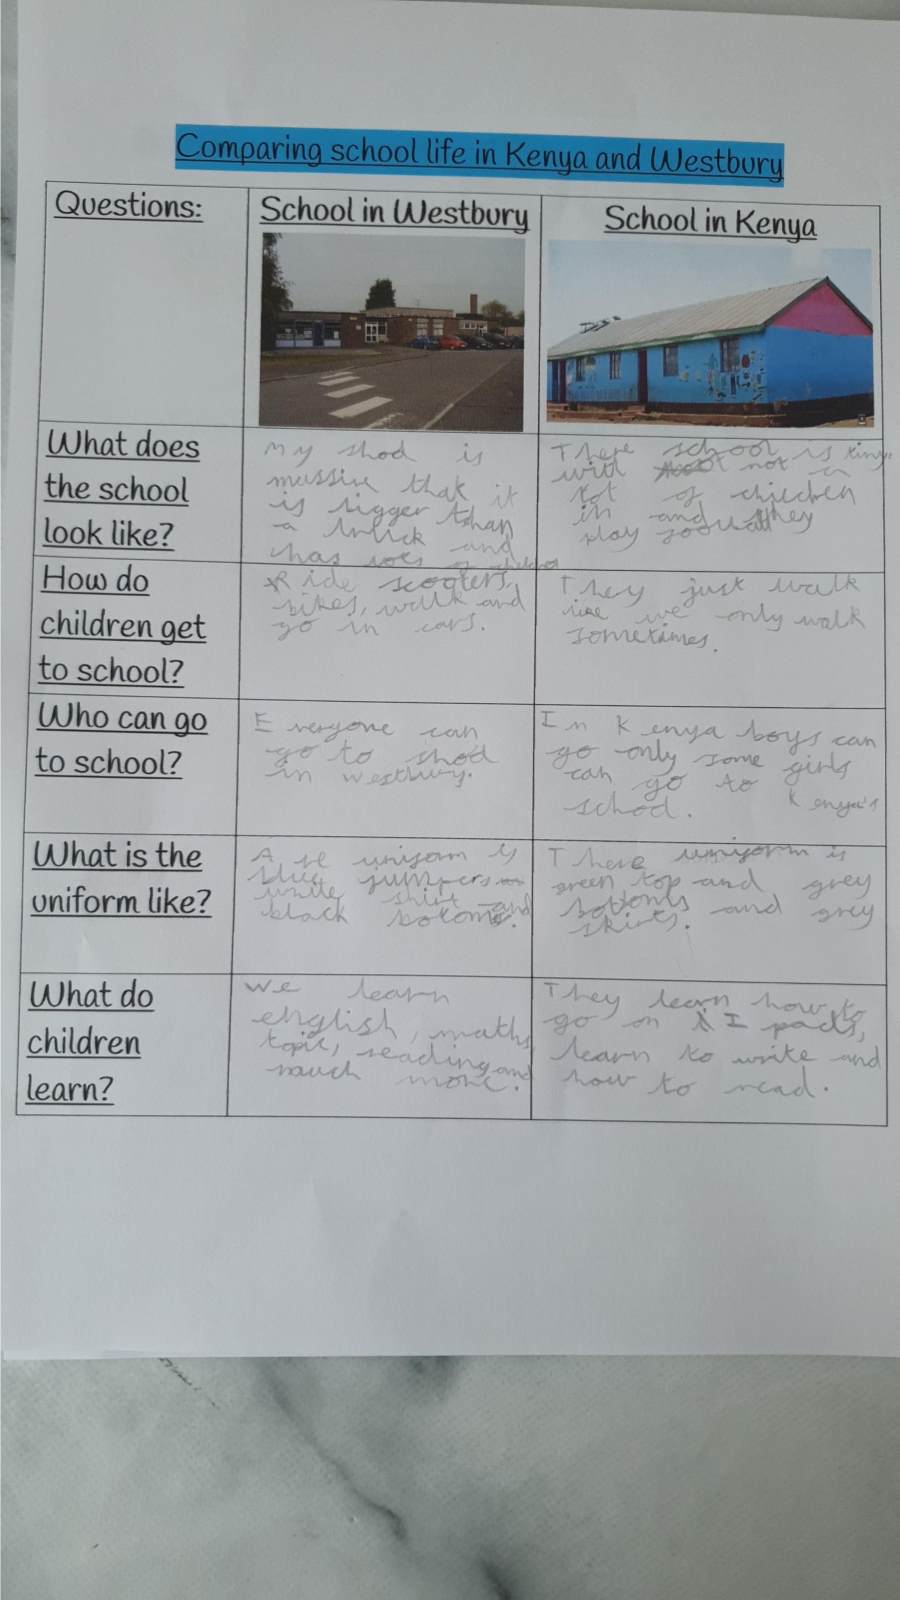 Comparing school life in Kenya and Westbury
Questions:
School in Westbury
School in Kenya
What does
the school
look like?
My shool is
massive that it
is bigger than
a truck and
has lots of
There school is tiny
with not a
lot of children
in and they
play football
How do
children get
to school?
Ride scooters,
bikes, walk and
go in cars.
They just walk
like we only walk
sometimes.
Who can go
to school?
Everyone can
go to shool
in westbury.
In Kenya boys can
go only some girls
can go to Kenya's
school.
What is the
uniform like?
Are uniform is
blue jumpers
white shirt and
black bottoms.
There uniform is
green top and grey
bottoms and grey
skirts.
What do
children
learn?
We learn
english, maths,
topic, reading and
much more.
They learn how to
go on I pads,
learn to write and
how to read.